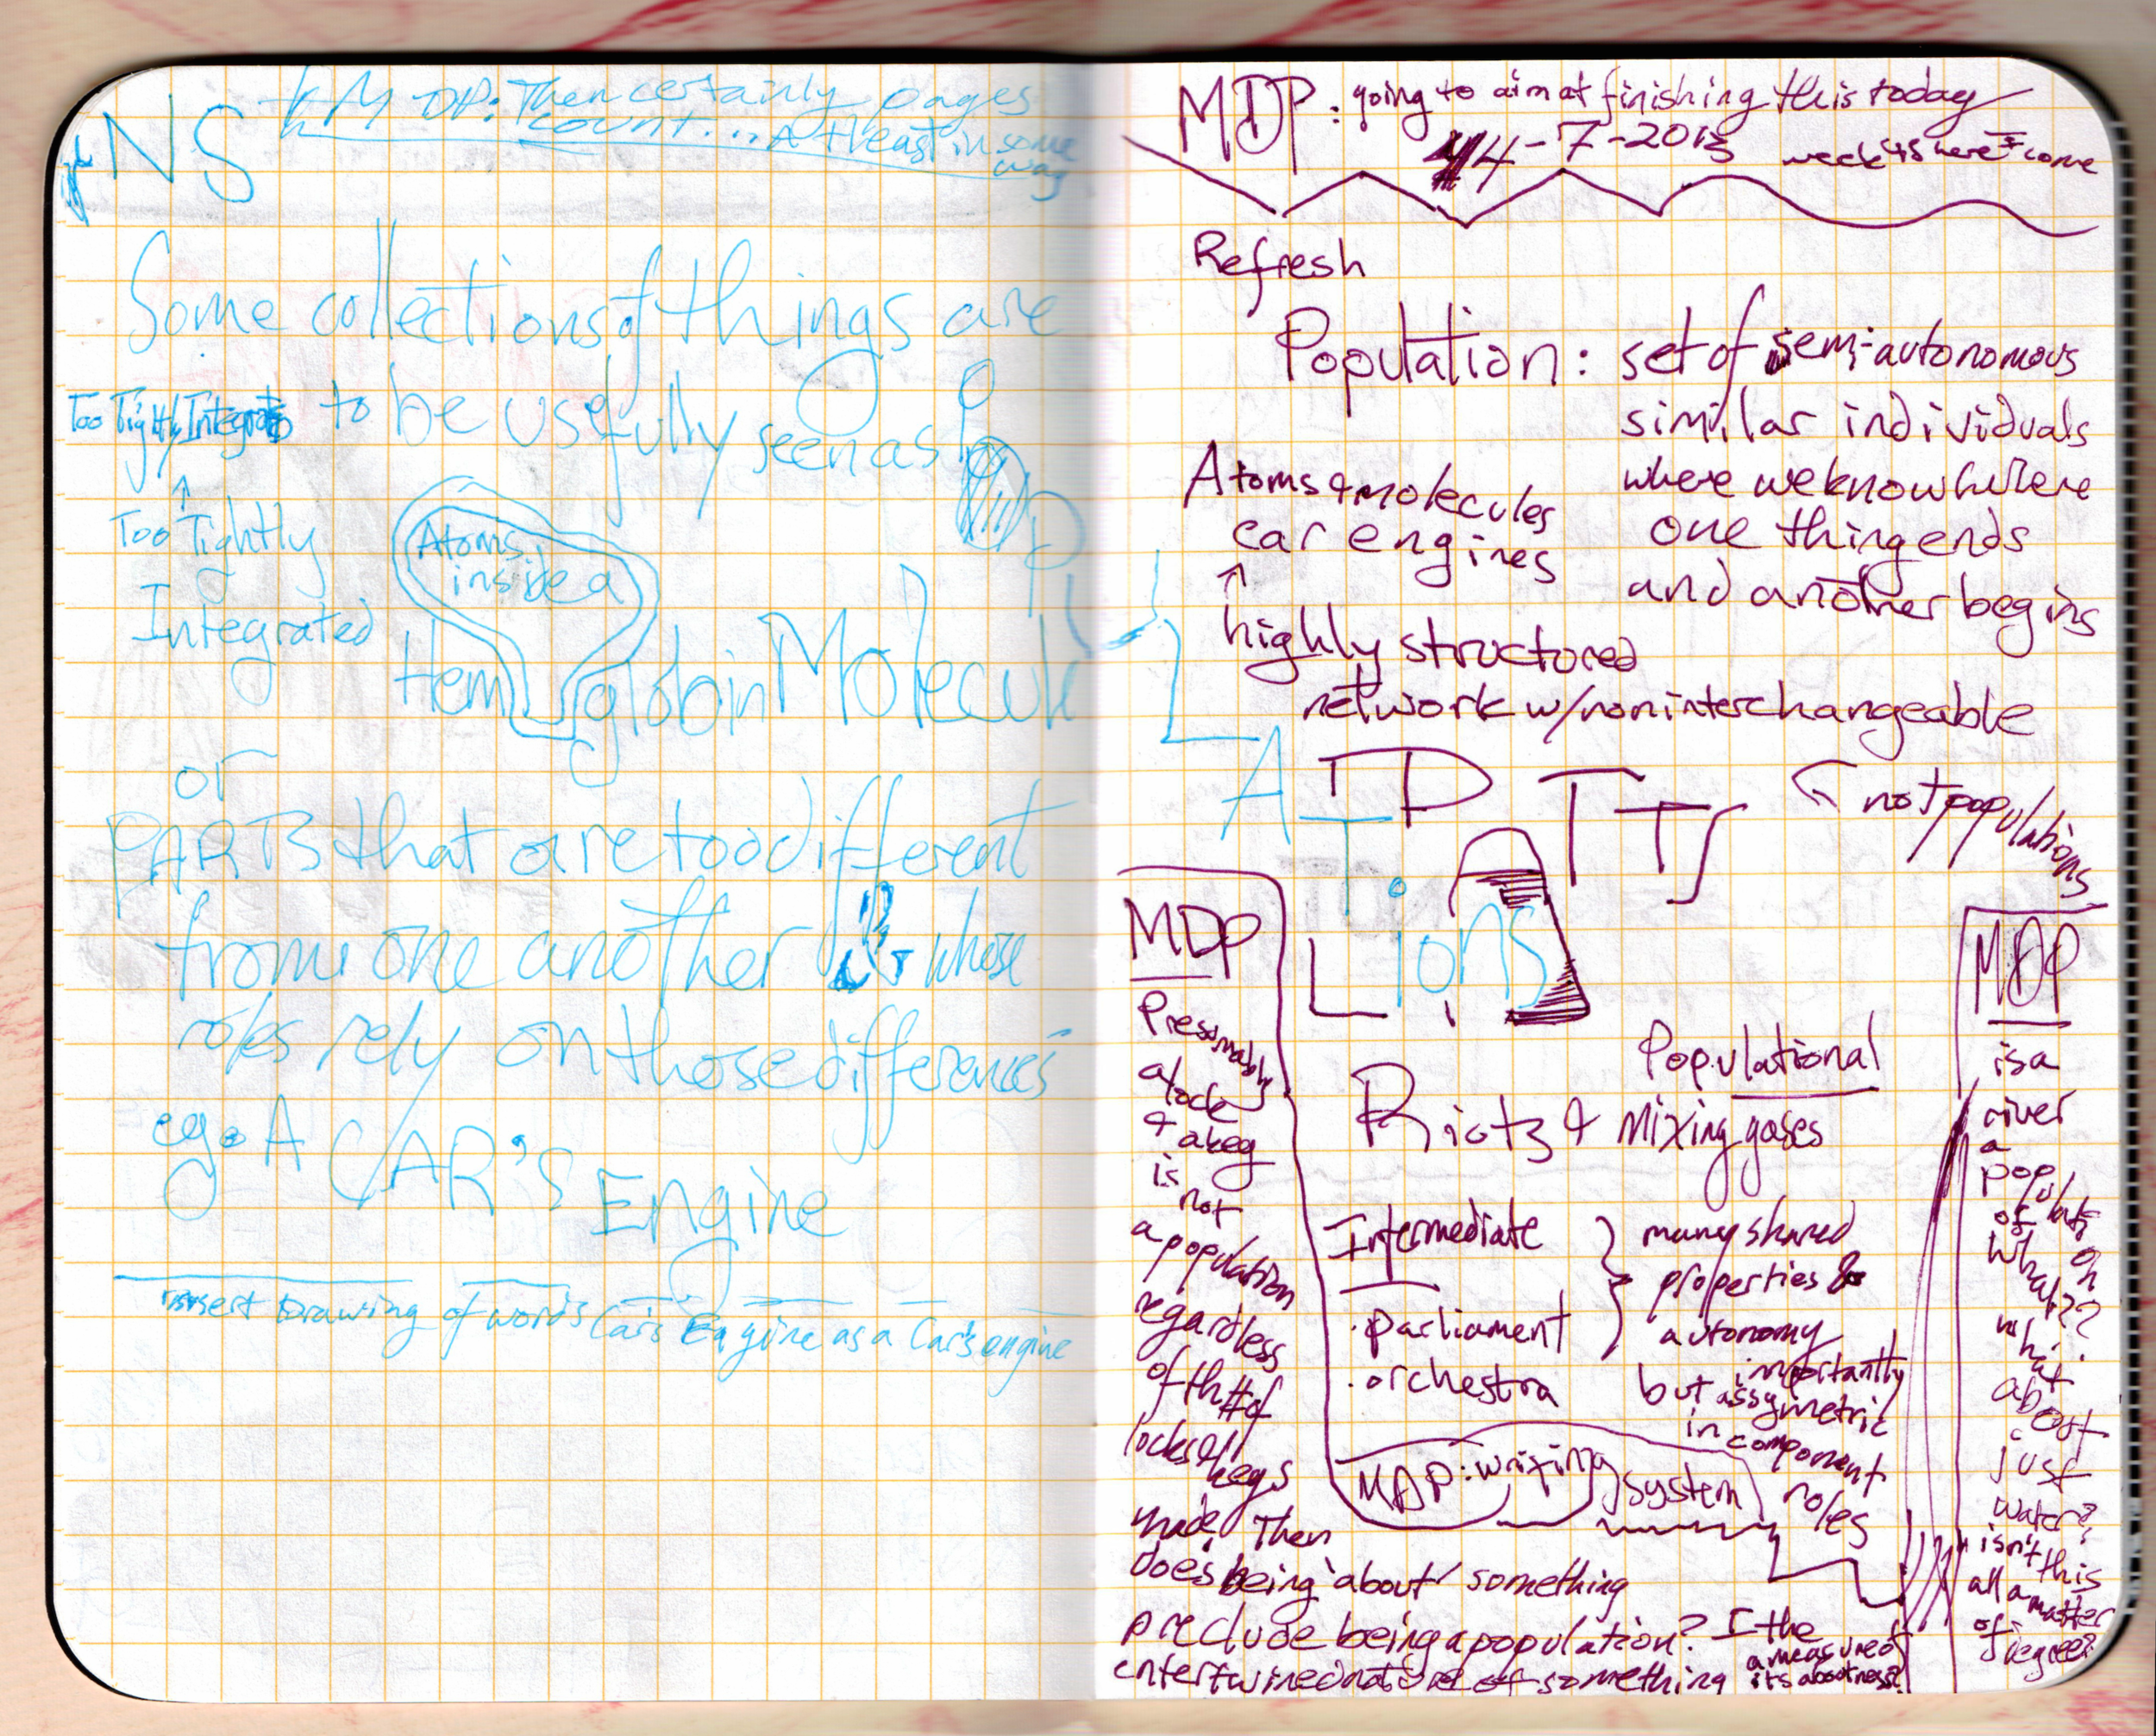 NS
MDP: Then certainly pages
count... At least in some
way
Some collections of things are
Too Tightly Integrated to be usefully seen as
POPULATIONS
Too Tightly
Integrated
Atoms
inside a
Hemoglobin Molecule
or
PARTS that are too different
from one another & whose
roles rely on those differences
eg. A CAR'S Engine
insert Drawing of words Car's Engine as a Car's engine
MDP: going to aim at finishing this today
4-7-2013 week 4 is here I come
Refresh
Population: set of semi-autonomous
similar individuals
where we know where
one thing ends
and another begins
Atoms & molecules
car engines
↑
highly structured
network w/noninterchangeable
PARTS
not populations
MDP
Presumably
a lock
& a key
is
not
a population
regardless
of the # of
locks & keys
made. Then
does being 'about' something
preclude being a population? I the
entertwined nature of something a measure of
its aboutness?
Populational
Riots & Mixing gases
Intermediate
· parliament
· orchestra
many shared
properties &
autonomy
but importantly
assymetric
in component
roles
MDP: writing system
MDP
is a
river
a
population
of
what??
what
about
just
water?
isn't this
all a matter
of degree?